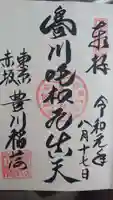 奉拝
令和元年
月十七日
豊川吒枳尼真天
東京
赤坂
豊川稲荷